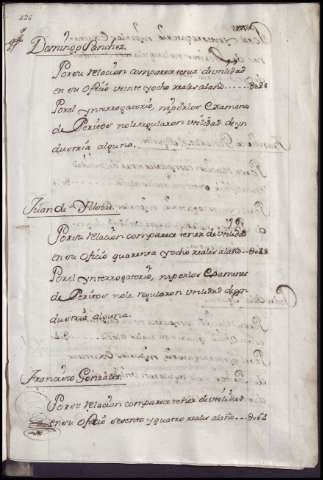 Domingo Sanchez
Por su relacion comparece tener de utilidad
en su oficio veinte y ocho reales al año --- 0028
Por el ynterrogatorio, ni por los Examenes
de Peritos no le regularon utilidad de yn
dustria alguna.
Juan de
Por su relacion comparece tener de utilidad
en su oficio quarenta y ocho reales al año --- 0048
Por el ynterrogatorio, ni por los Examenes
de Peritos no le regularon utilidad de yn
dustria alguna.
Francisco Gonzalez
Por su relacion comparece tener de utilidad
en su oficio sesenta y quatro reales al año --- 0064